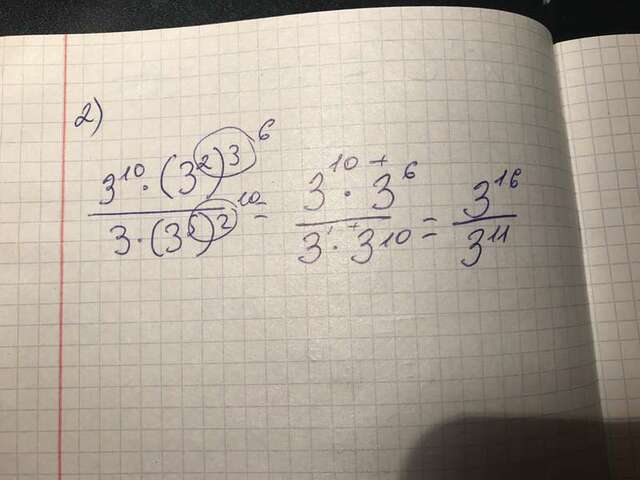 2)
3¹⁰·(3²)³ ⁶ / 3·(3⁵)² ¹⁰ = 3¹⁰⁺·3⁶ / 3¹·⁺3¹⁰ = 3¹⁶ / 3¹¹